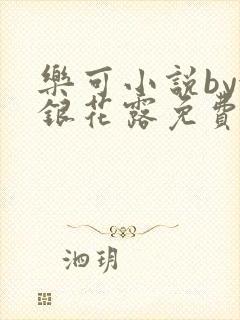 樂可小說by
銀花露免費
泗玥